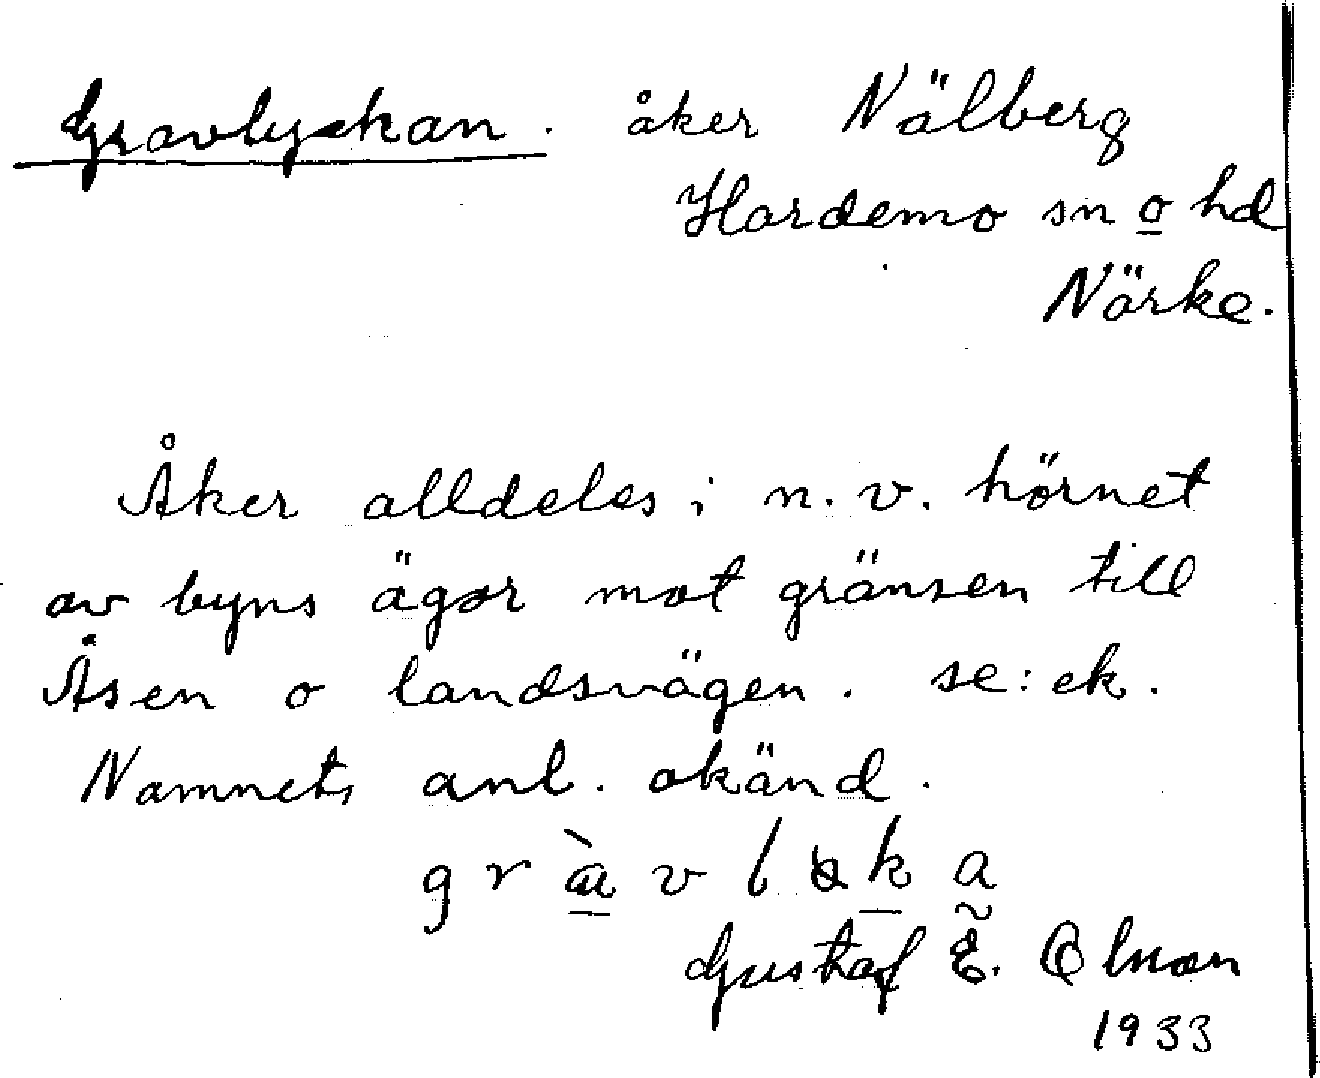 Gravlyckan. åker Nälberg
Hardemo sn o hd
Närke.
Åker alldeles i n. v. hörnet
av byns ägor mot gränsen till
Åsen o landsvägen. se: ek.
Namnets anl. okänd.
Gustaf E.
1933